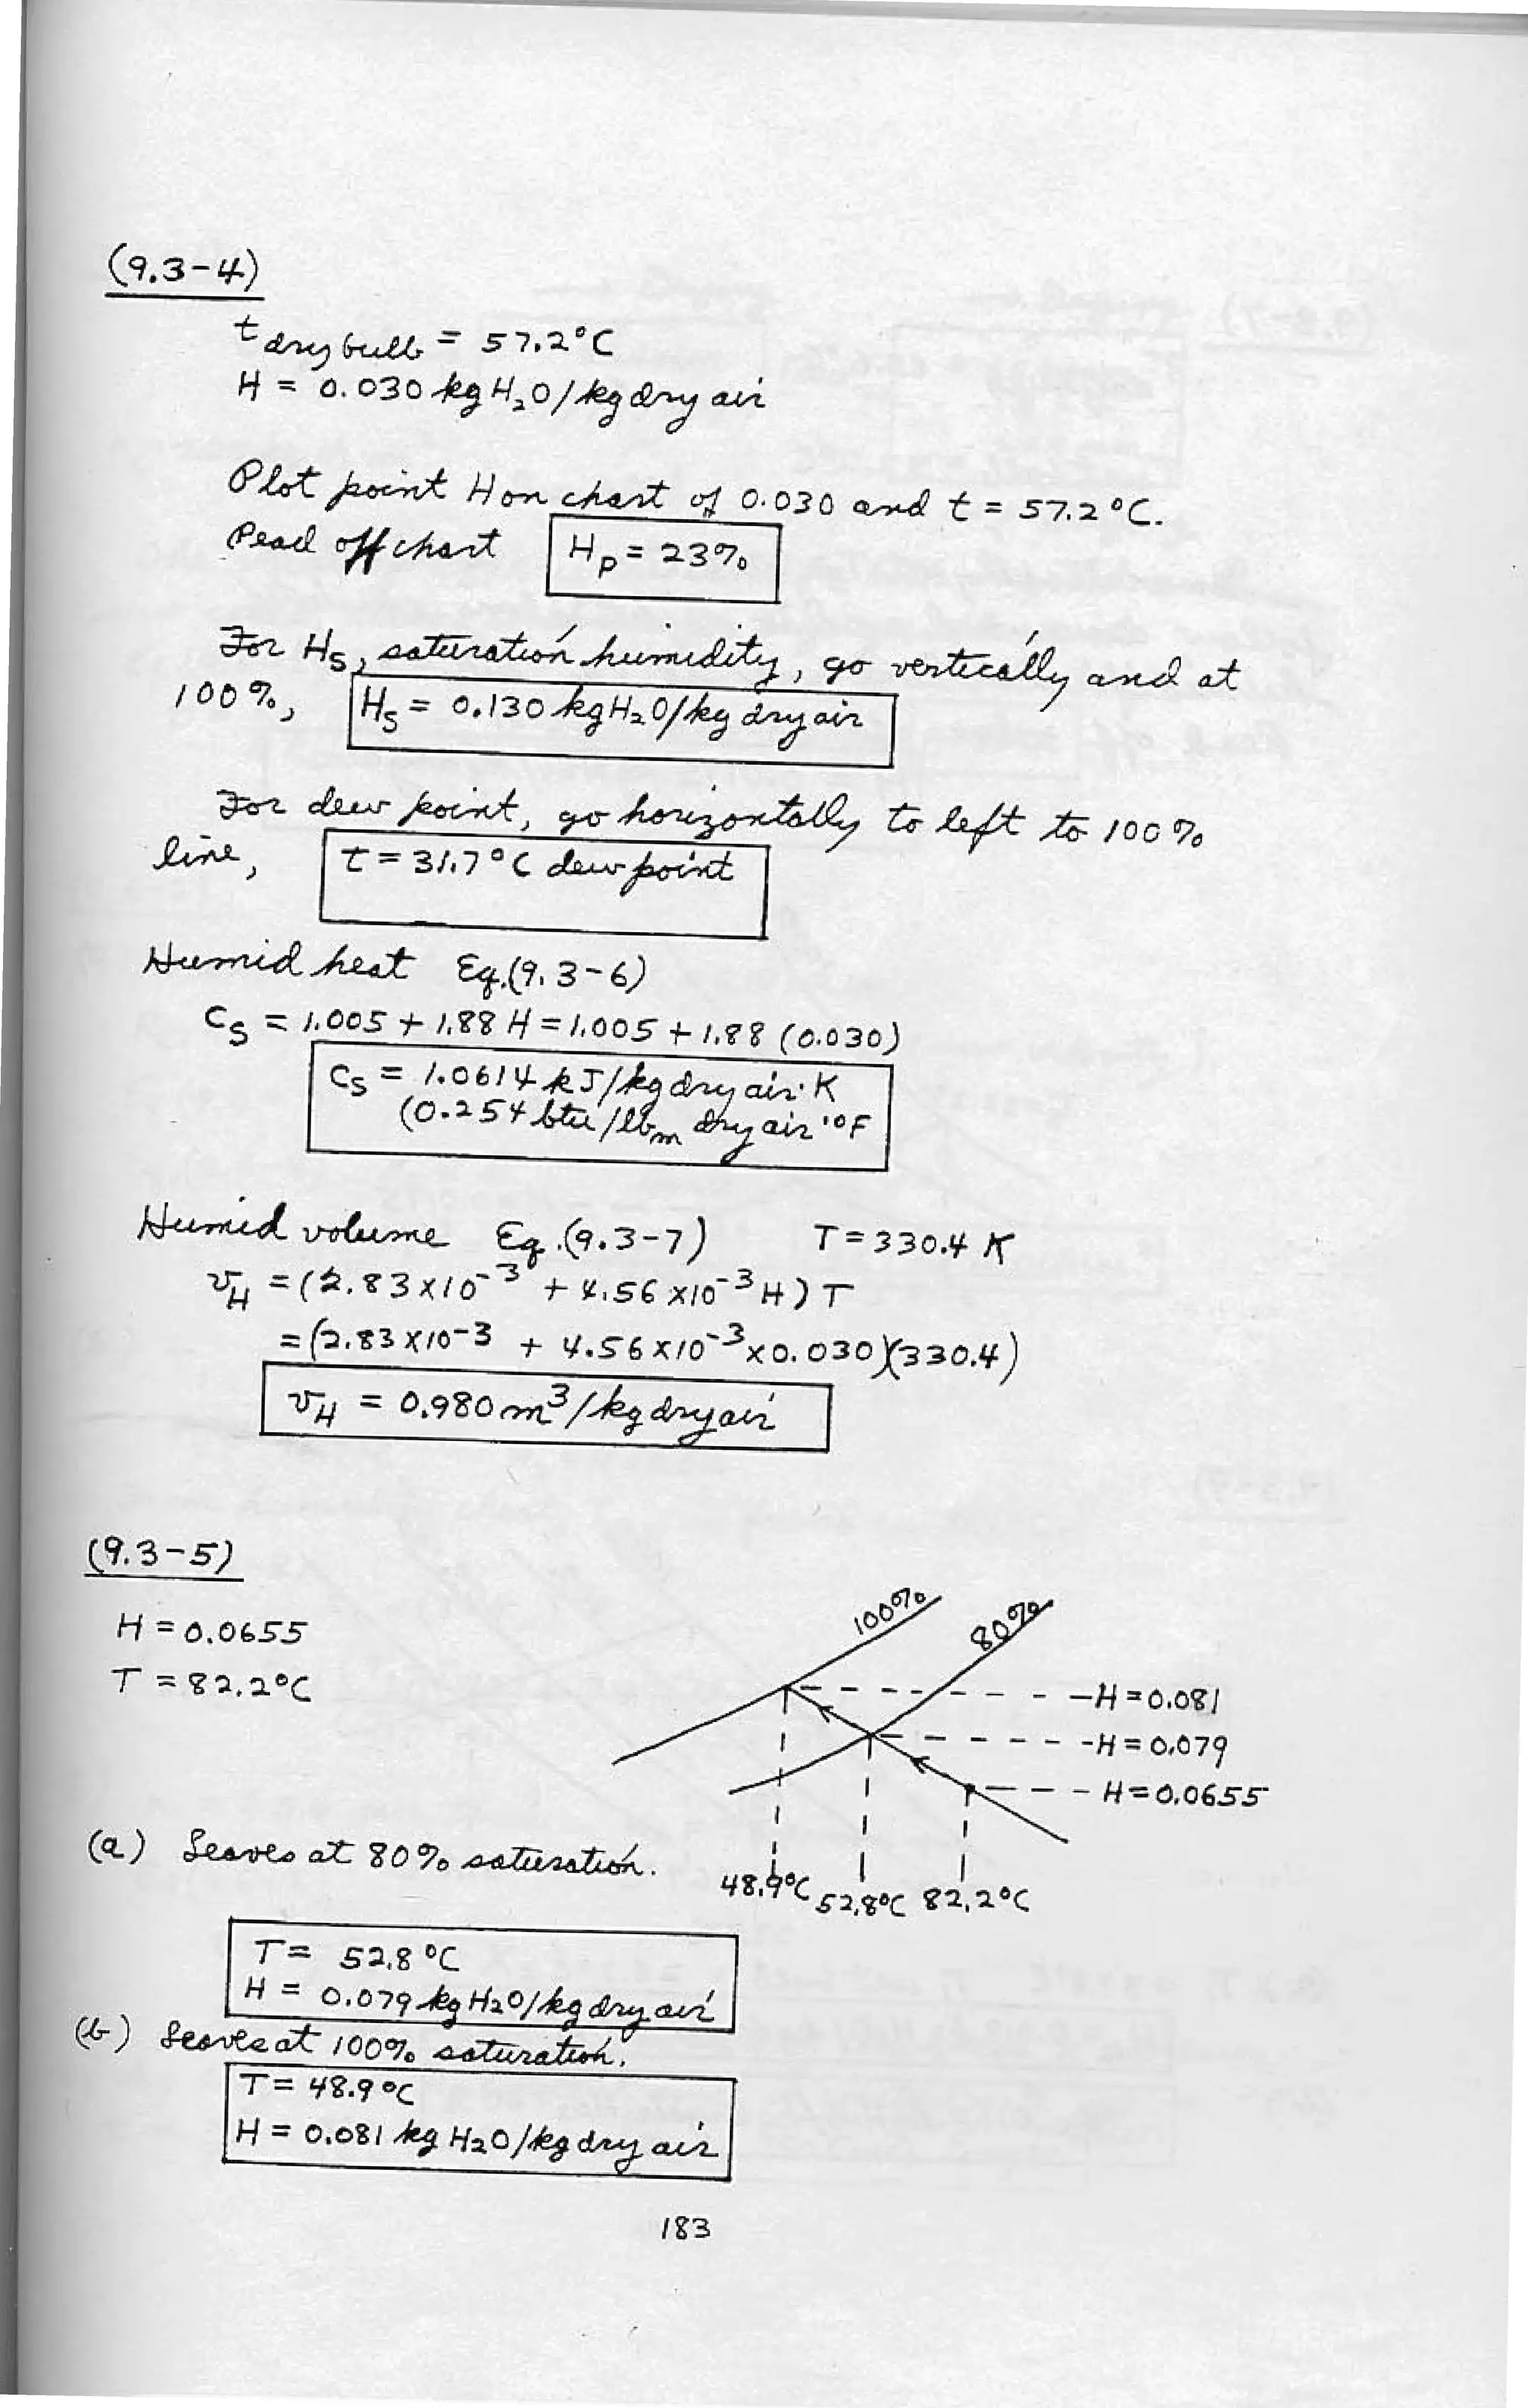 (9.3-4)
t dry bulb = 57.2°C
H = 0.030 kg H₂O/kg dry air
Plot point H on chart of 0.030 and t = 57.2°C.
Read off chart H_P = 23%
For H_S, saturation humidity, go vertically and at
100%, H_S = 0.130 kg H₂O/kg dry air
For dew point, go horizontally to left to 100%
line, t = 31.7°C dew point
Humid heat Eq.(9.3-6)
c_S = 1.005 + 1.88 H = 1.005 + 1.88 (0.030)
c_S = 1.0614 kJ/kg dry air·K
(0.254 btu/lb_m dry air·°F
Humid volume Eq.(9.3-7) T = 330.4 K
v_H = (2.83 x10⁻³ + 4.56 x10⁻³ H) T
= (2.83 x10⁻³ + 4.56 x10⁻³ x 0.030)(330.4)
v_H = 0.980 m³/kg dry air
(9.3-5)
H = 0.0655
T = 82.2°C
100%
80%
-H = 0.081
-H = 0.079
H = 0.0655
48.9°C 52.8°C 82.2°C
(a) Leaves at 80% saturation.
T = 52.8 °C
H = 0.079 kg H₂O/kg dry air
(b) Leaves at 100% saturation.
T = 48.9 °C
H = 0.081 kg H₂O/kg dry air
183